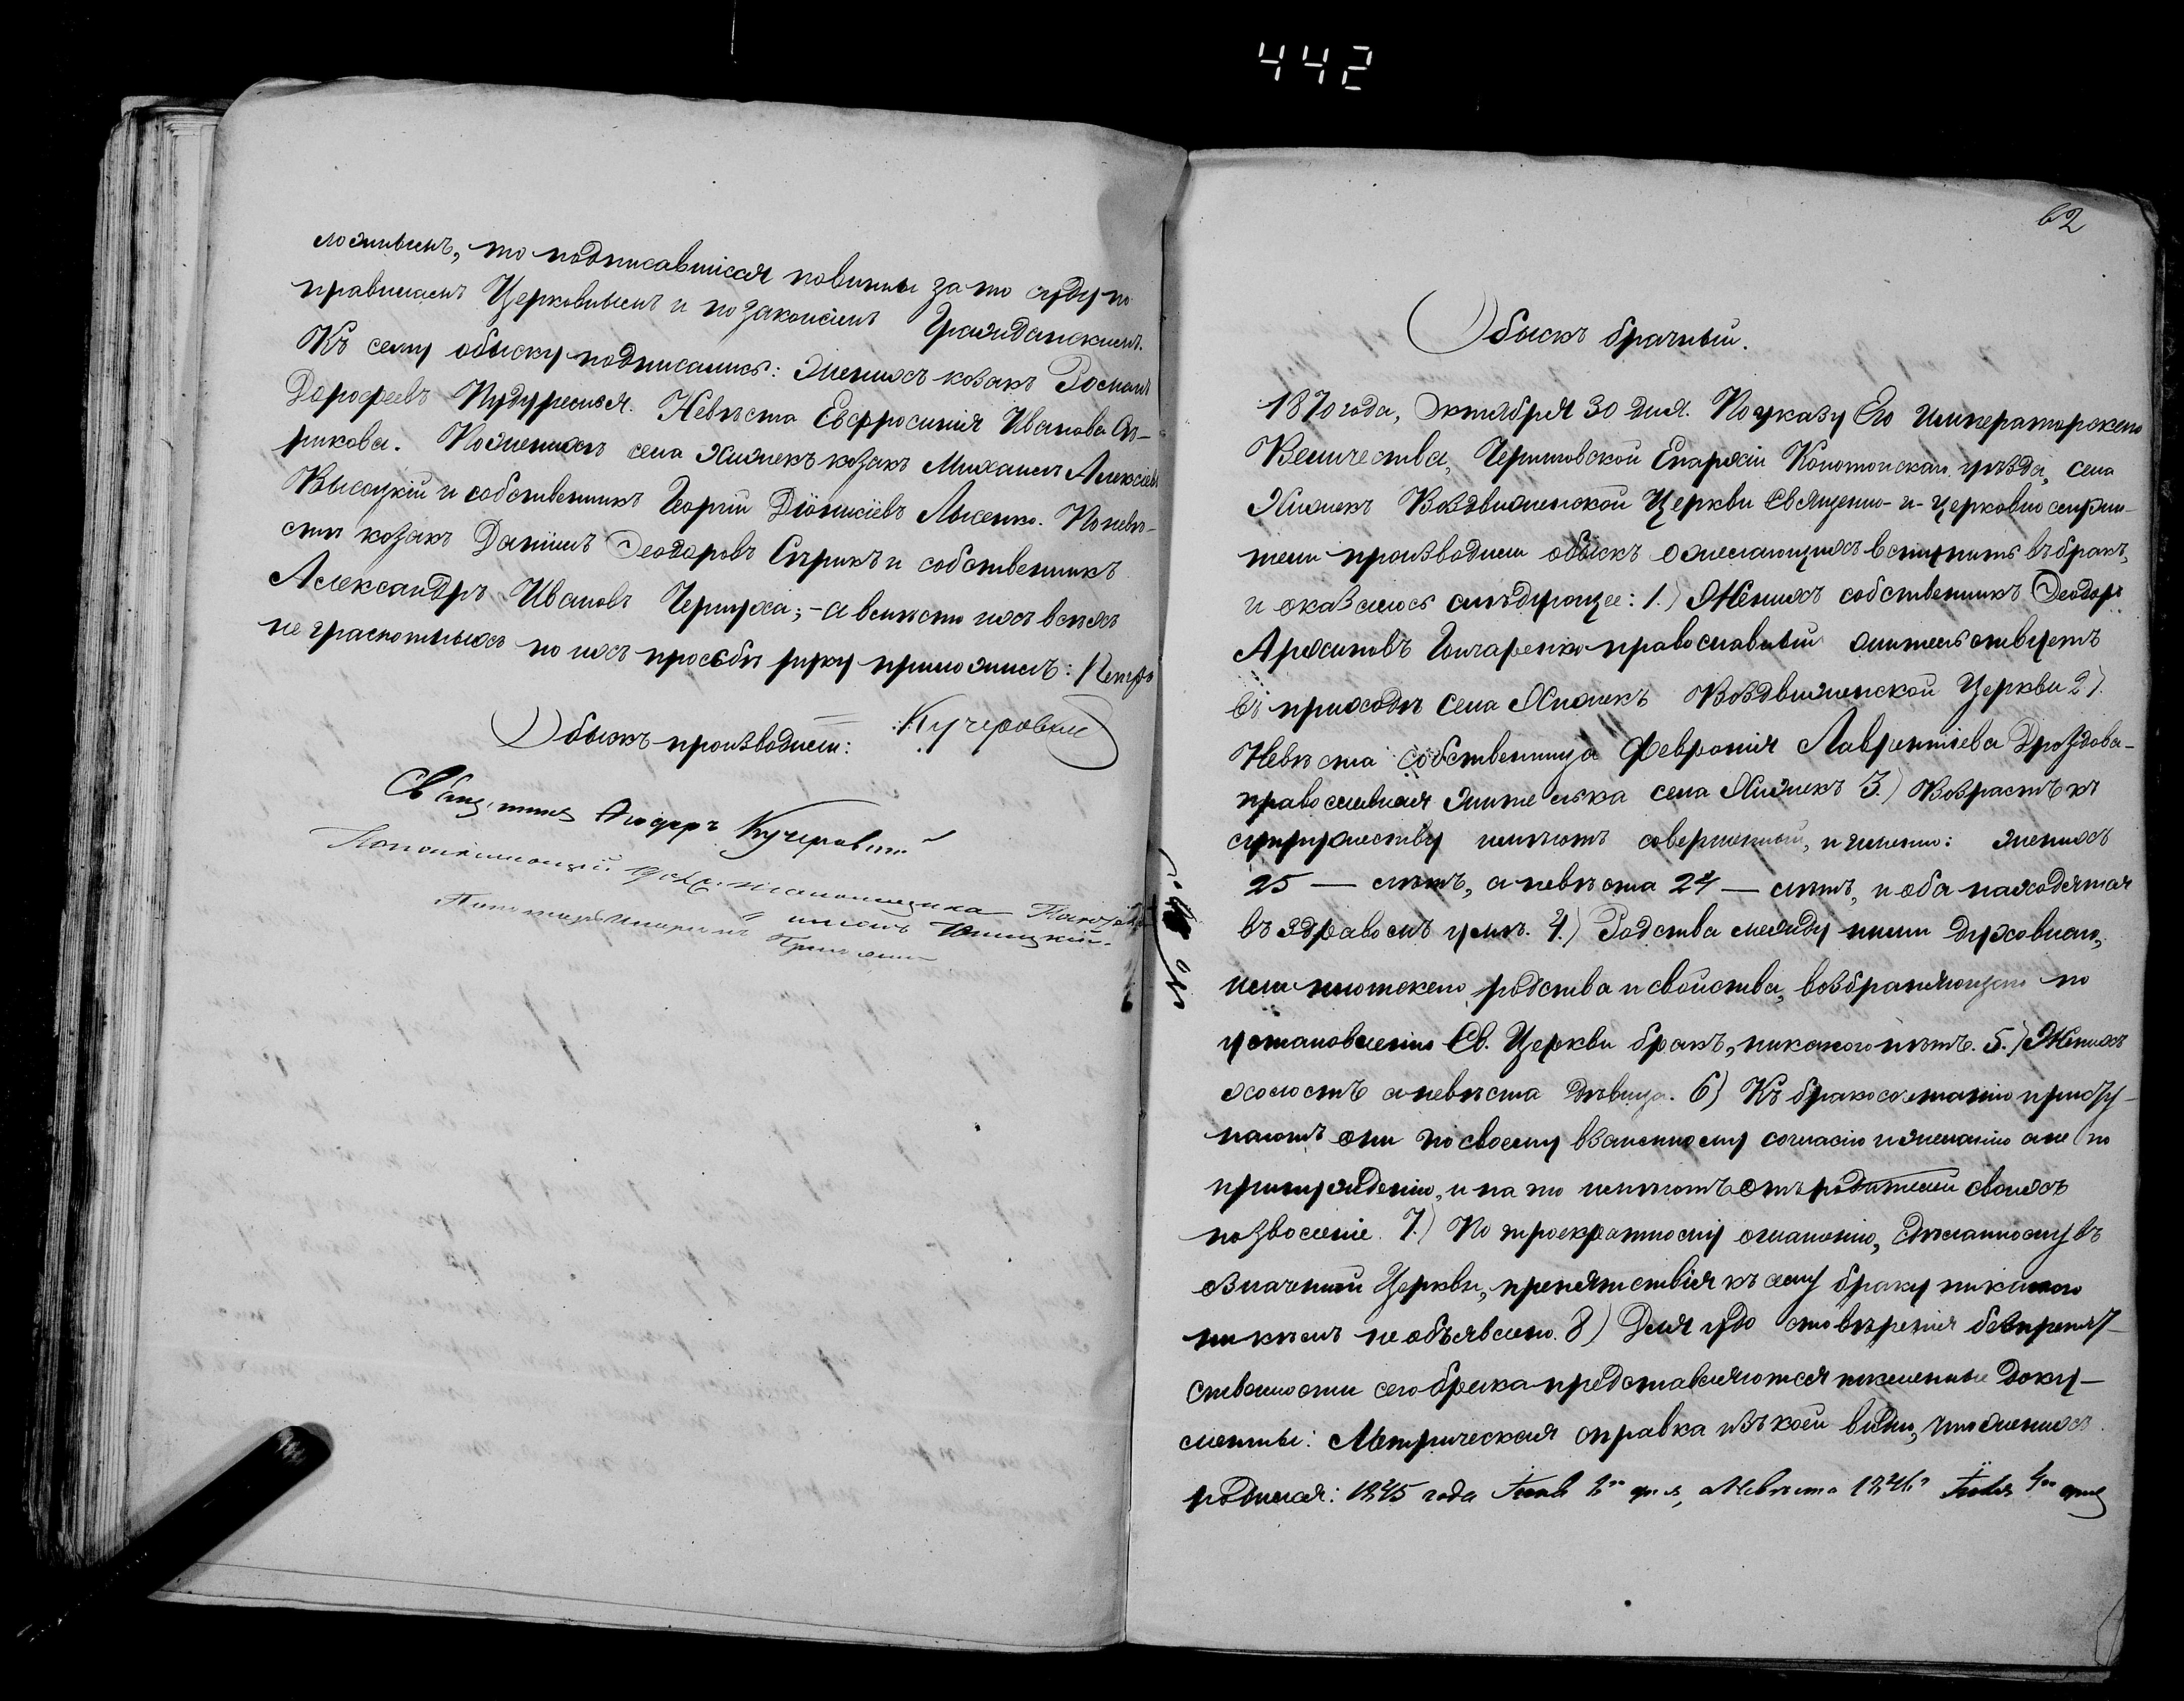 442
ложнымъ, то подписавшіеся повинны за то суду по
правиламъ Церковнымъ и по законамъ Гражданскимъ.
Къ сему обыску подписались: Женихъ козакъ Романъ
Дорофеевъ Невѣста Евфросинія Иванова Сѣ-
рикова. По женихѣ села Хижекъ козакъ Михаилъ Алексѣевъ
Высоцкій и собственникъ Георгій Діонисіевъ Лысенко. По невѣ-
стѣ козакъ Даніилъ Ѳеодоровъ Сѣрикъ и собственникъ
Александръ Ивановъ Черпуха; - а вмѣсто ихъ всѣхъ
неграмотныхъ по ихъ просьбѣ руку приложилъ: Петръ
Кучеровскій
Обыскъ производили:
Священникъ Ѳеодоръ Кучеровскій
Исполняющій
62
Обыскъ брачный.
1870 года, Октября 30 дня. По указу Его Императорскаго
Величества, Черниговской Епархіи Конотопскаго уѣзда, села
Хижекъ Воздвиженской Церкви Священно- и- церковнослужи-
тели производили обыскъ о желающихъ вступить въ бракъ,
и оказалось слѣдующее: 1.) Женихъ собственникъ Ѳеодоръ
Архиповъ Гончаренко православный жительствуетъ
въ приходѣ села Хижекъ Воздвиженской Церкви 2).
Невѣста собственница Февронія Лаврентіева Дроздова-
православная жителька села Хижекъ 3.) Возрастъ къ
супружеству имѣютъ совершенный, и именно: женихъ
25 — лѣтъ, а невѣста 24 — лѣтъ, и оба находятся
въ здравомъ умѣ. 4.) Родства между ними духовнаго,
или плотскаго родства и свойства, возбраняющаго по
установленію Св. Церкви бракъ, никакого нѣтъ. 5.) Женихъ
холостъ а невѣста дѣвица. 6) Къ бракосочетанію присту-
паютъ они по своему взаимному согласію и желанію а не по
принужденію, и на то имѣютъ отъ родителей своихъ
позволеніе. 7.) По троекратному оглашенію, сдѣланному въ
означенной Церкви, препятствія къ сему браку никакого
ни кѣмъ не объявлено. 8) Для удостовѣренія безпрепят-
ственности сего брака представляются письменные доку-
менты: Метрическая справка изъ коей видно, что женихъ
родился: 1845 года дня, а Невѣста 1846